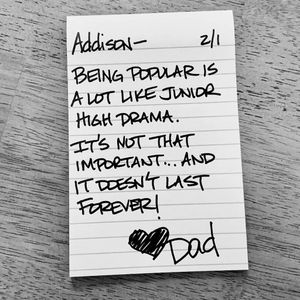 Addison— 2/1
BEING POPULAR IS
A LOT LIKE JUNIOR
HIGH DRAMA.
IT'S NOT THAT
IMPORTANT... AND
IT DOESN'T LAST
FOREVER!
Dad